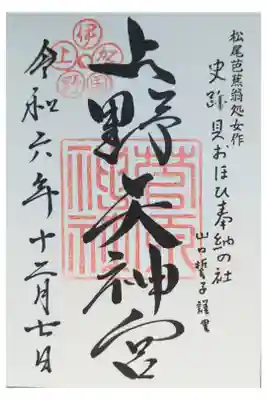 松尾芭蕉翁処女作
史跡貝おほひ奉納の社
山口誓子謹書
上野天神宮
菅原神社
伊賀国上野
令和六年十二月七日